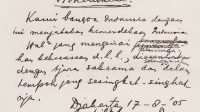 Proklamasi
Kami bangsa Indonesia dengan
ini menjatakan kemerdekaan Indonesia.
Hal² jang mengenai
kekoeasaan d.l.l., diselenggarakan
dengan tjara saksama dan dalam
tempoh jang sesingkat-singkat-
nja.
Djakarta 17 - 8 - '05